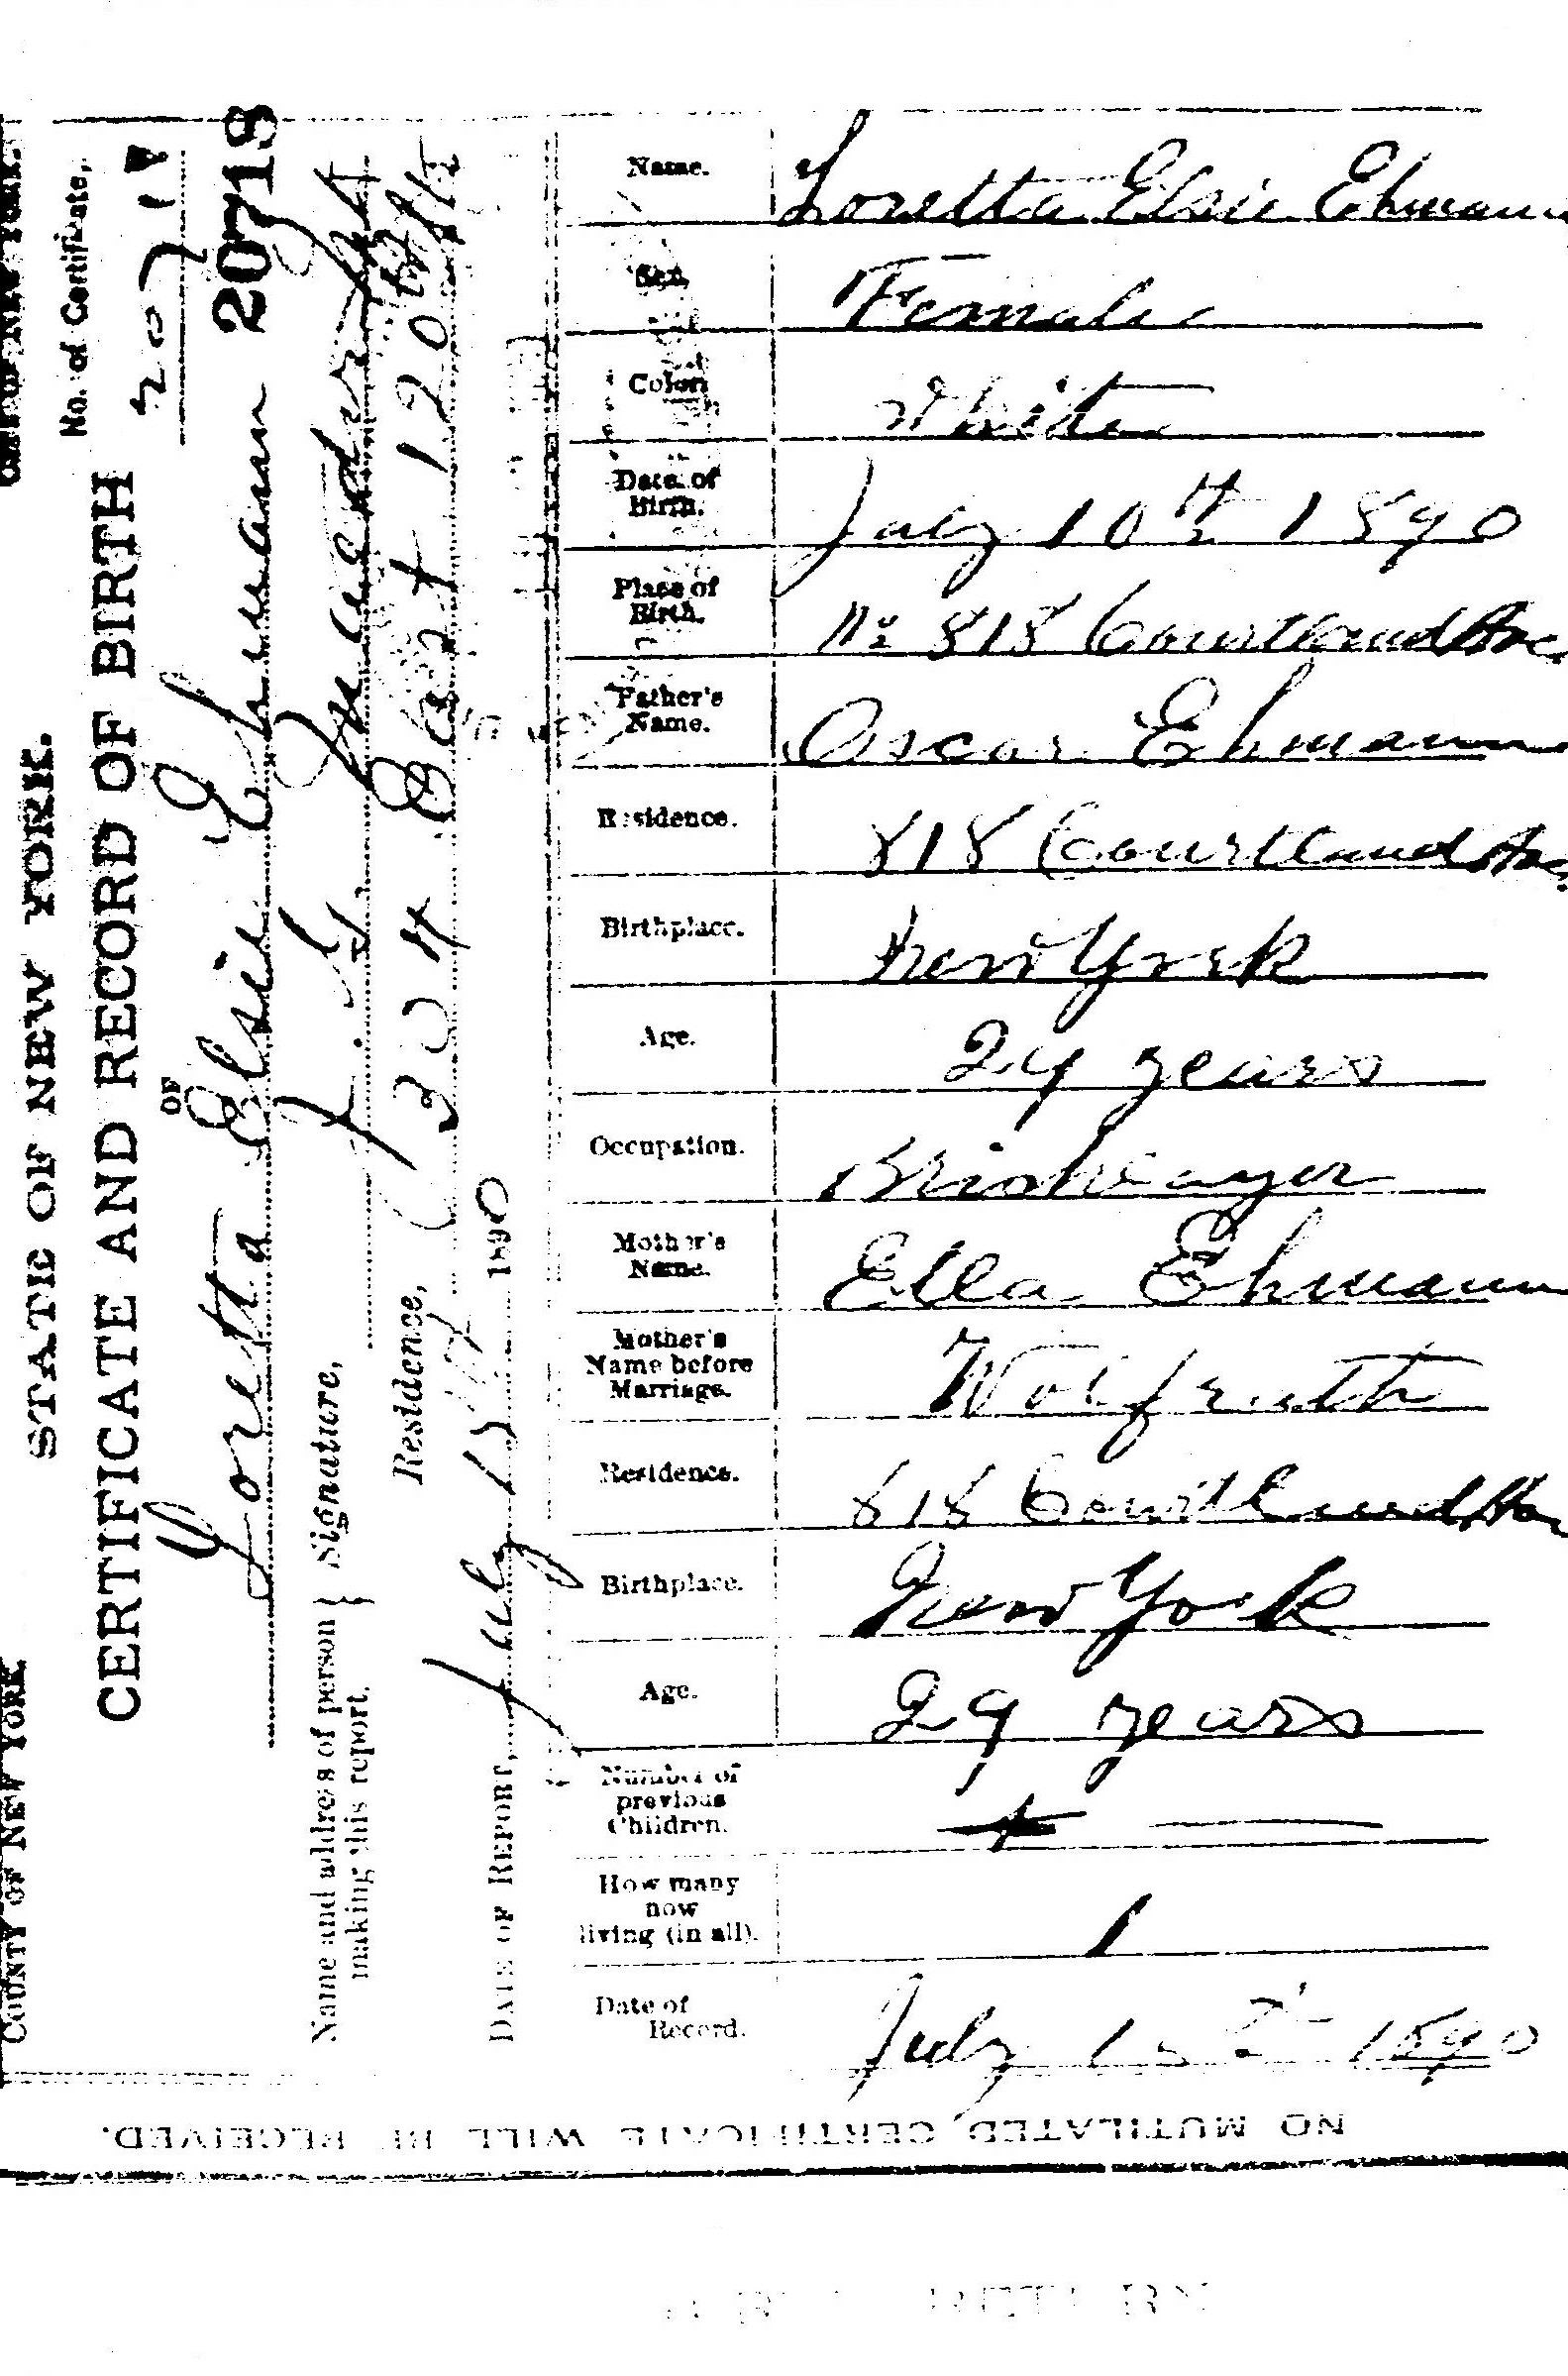 CITY OF NEW YORK.
COUNTY OF NEW YORK.
STATE OF NEW YORK.
No. of Certificate,
20718
CERTIFICATE AND RECORD OF BIRTH
OF
Loretta Elsie Ehmann 20718
Name and address of person making this report. } Signature,
Residence, 304 East 120th St
DATE OF REPORT, July 15 1890
Name. Loretta Elsie Ehmann
Sex. Female
Color. White
Date of Birth. July 10th 1890
Place of Birth. No 818 Courtland Ave
Father's Name. Oscar Ehmann
Residence. 818 Courtland Ave
Birthplace. New York
Age. 29 years
Occupation.
Mother's Name. Ella Ehmann
Mother's Name before Marriage. Wolfrath
Residence. 818 Courtland Ave
Birthplace. New York
Age. 29 years
Number of previous Children.
How many now living (in all). 1
Date of Record. July 15th 1890
NO MUTILATED CERTIFICATE WILL BE RECEIVED.